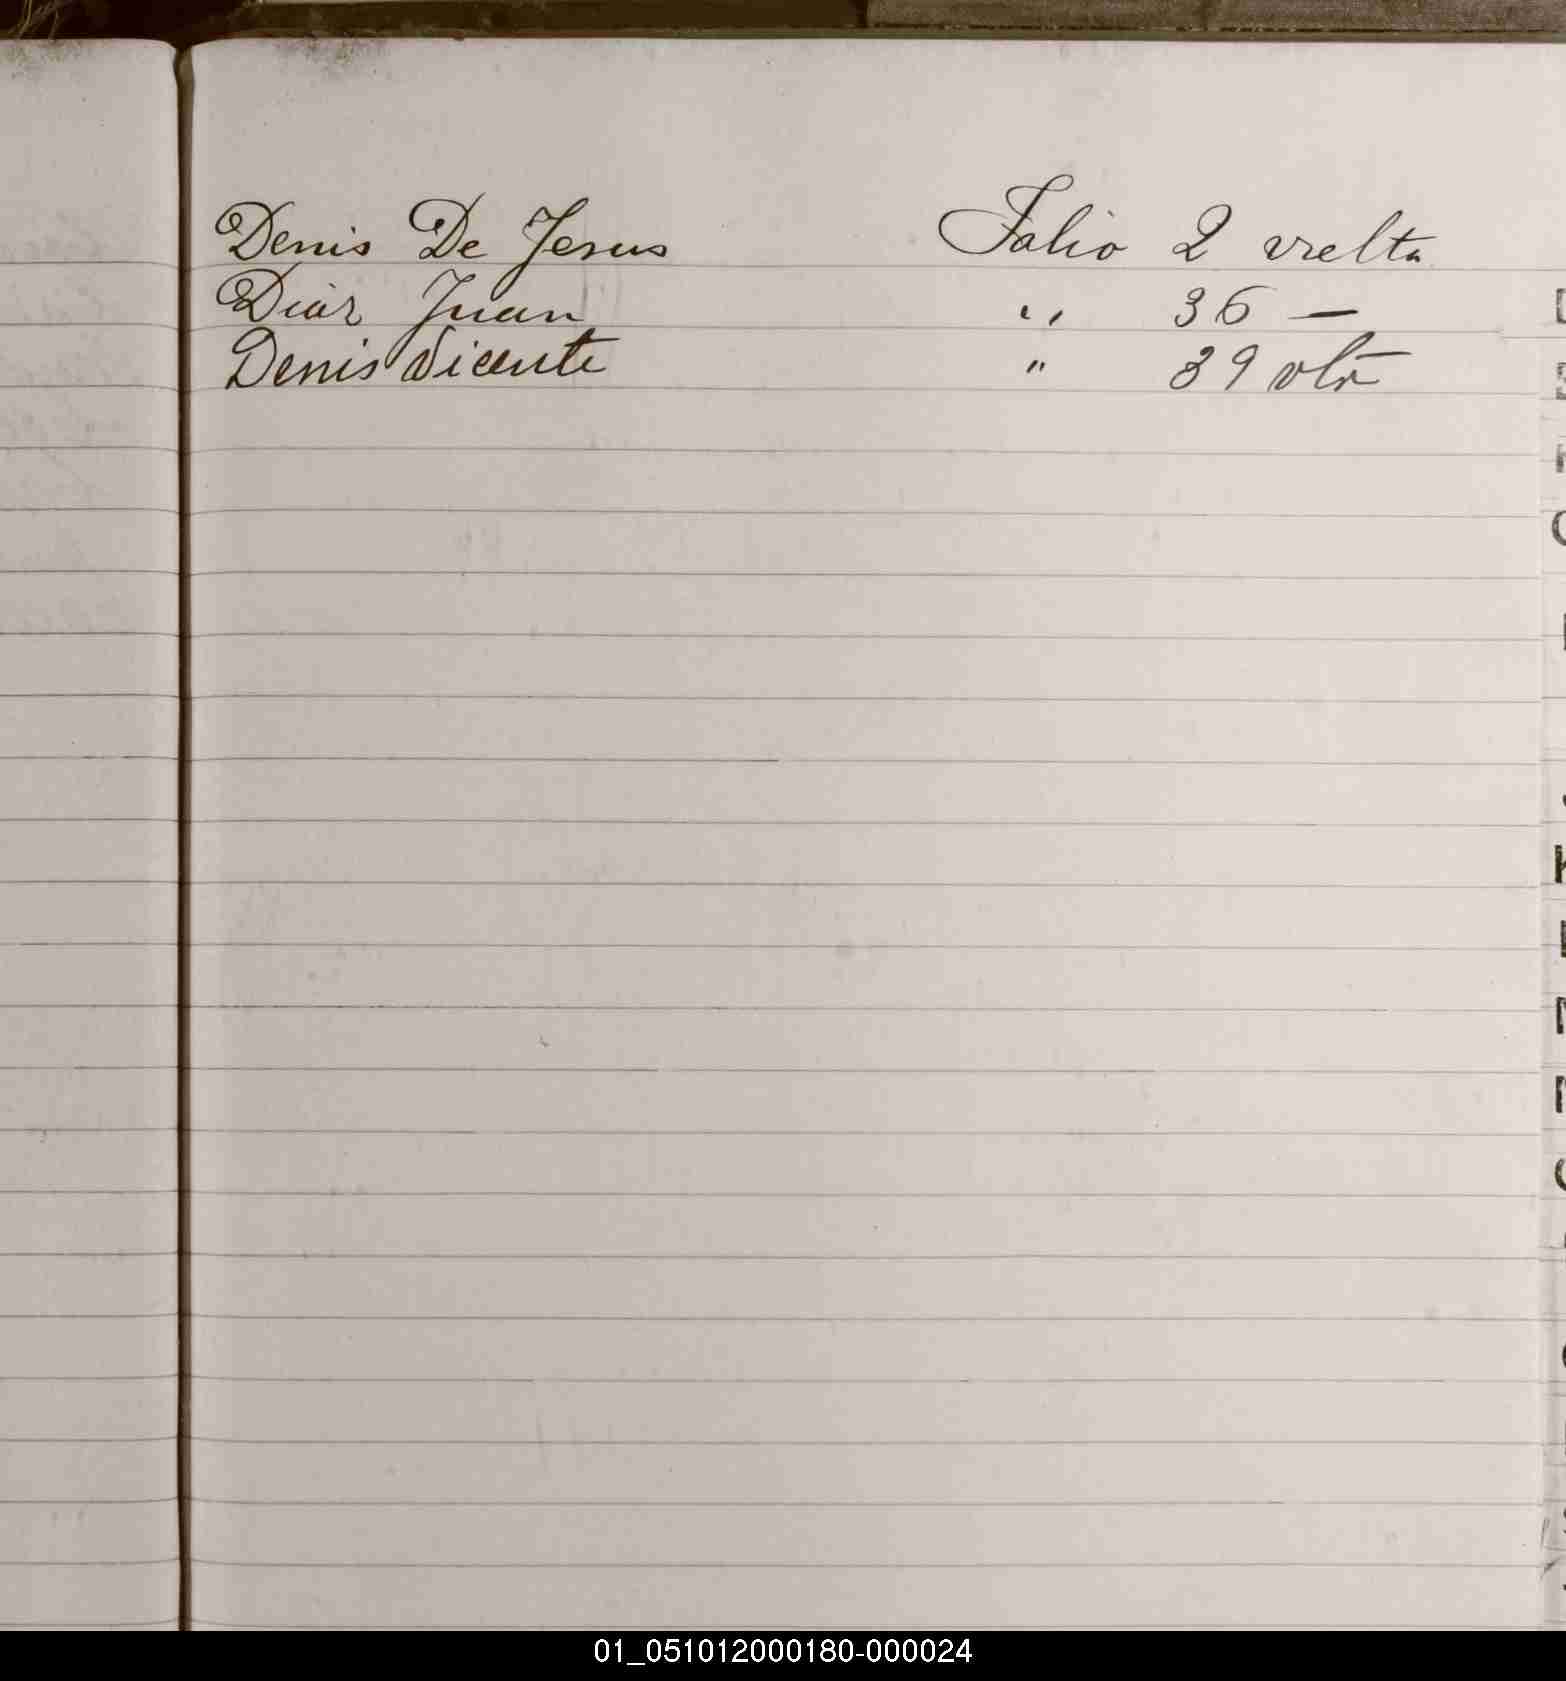 Denis De Jesus Folio 2 vuelta
Diaz Juan " 36 —
Denis Vicente " 39 vta
K
01_051012000180-000024